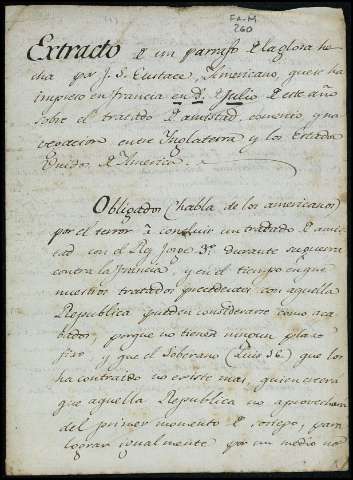 FA-M
260
Extracto de un parrafo de la glosa he
cha por J. S. Eustace, Americano, que se ha
impreso en francia en d. de Julio de este año
sobre el tratado de amistad, comercio y na
vegacion entre Ynglaterra y los Estados
Unidos de America.
Obligados (habla de los americanos)
por el terror à concluir un tratado de amis
tad con el Rey Jorge 3º durante su guerra
contra la francia, y en el tiempo en que
nuestros tratados precedentes con aquella
Republica pueden considerarse como aca
bados, porque no tienen ningun plazo
fixo y que el Soberano (Luis 16) que los
ha contraido no existe mas, quien creera
que aquella Republica no aprovechara
del primer momento de reposo, para
lograr igualmente por un medio no